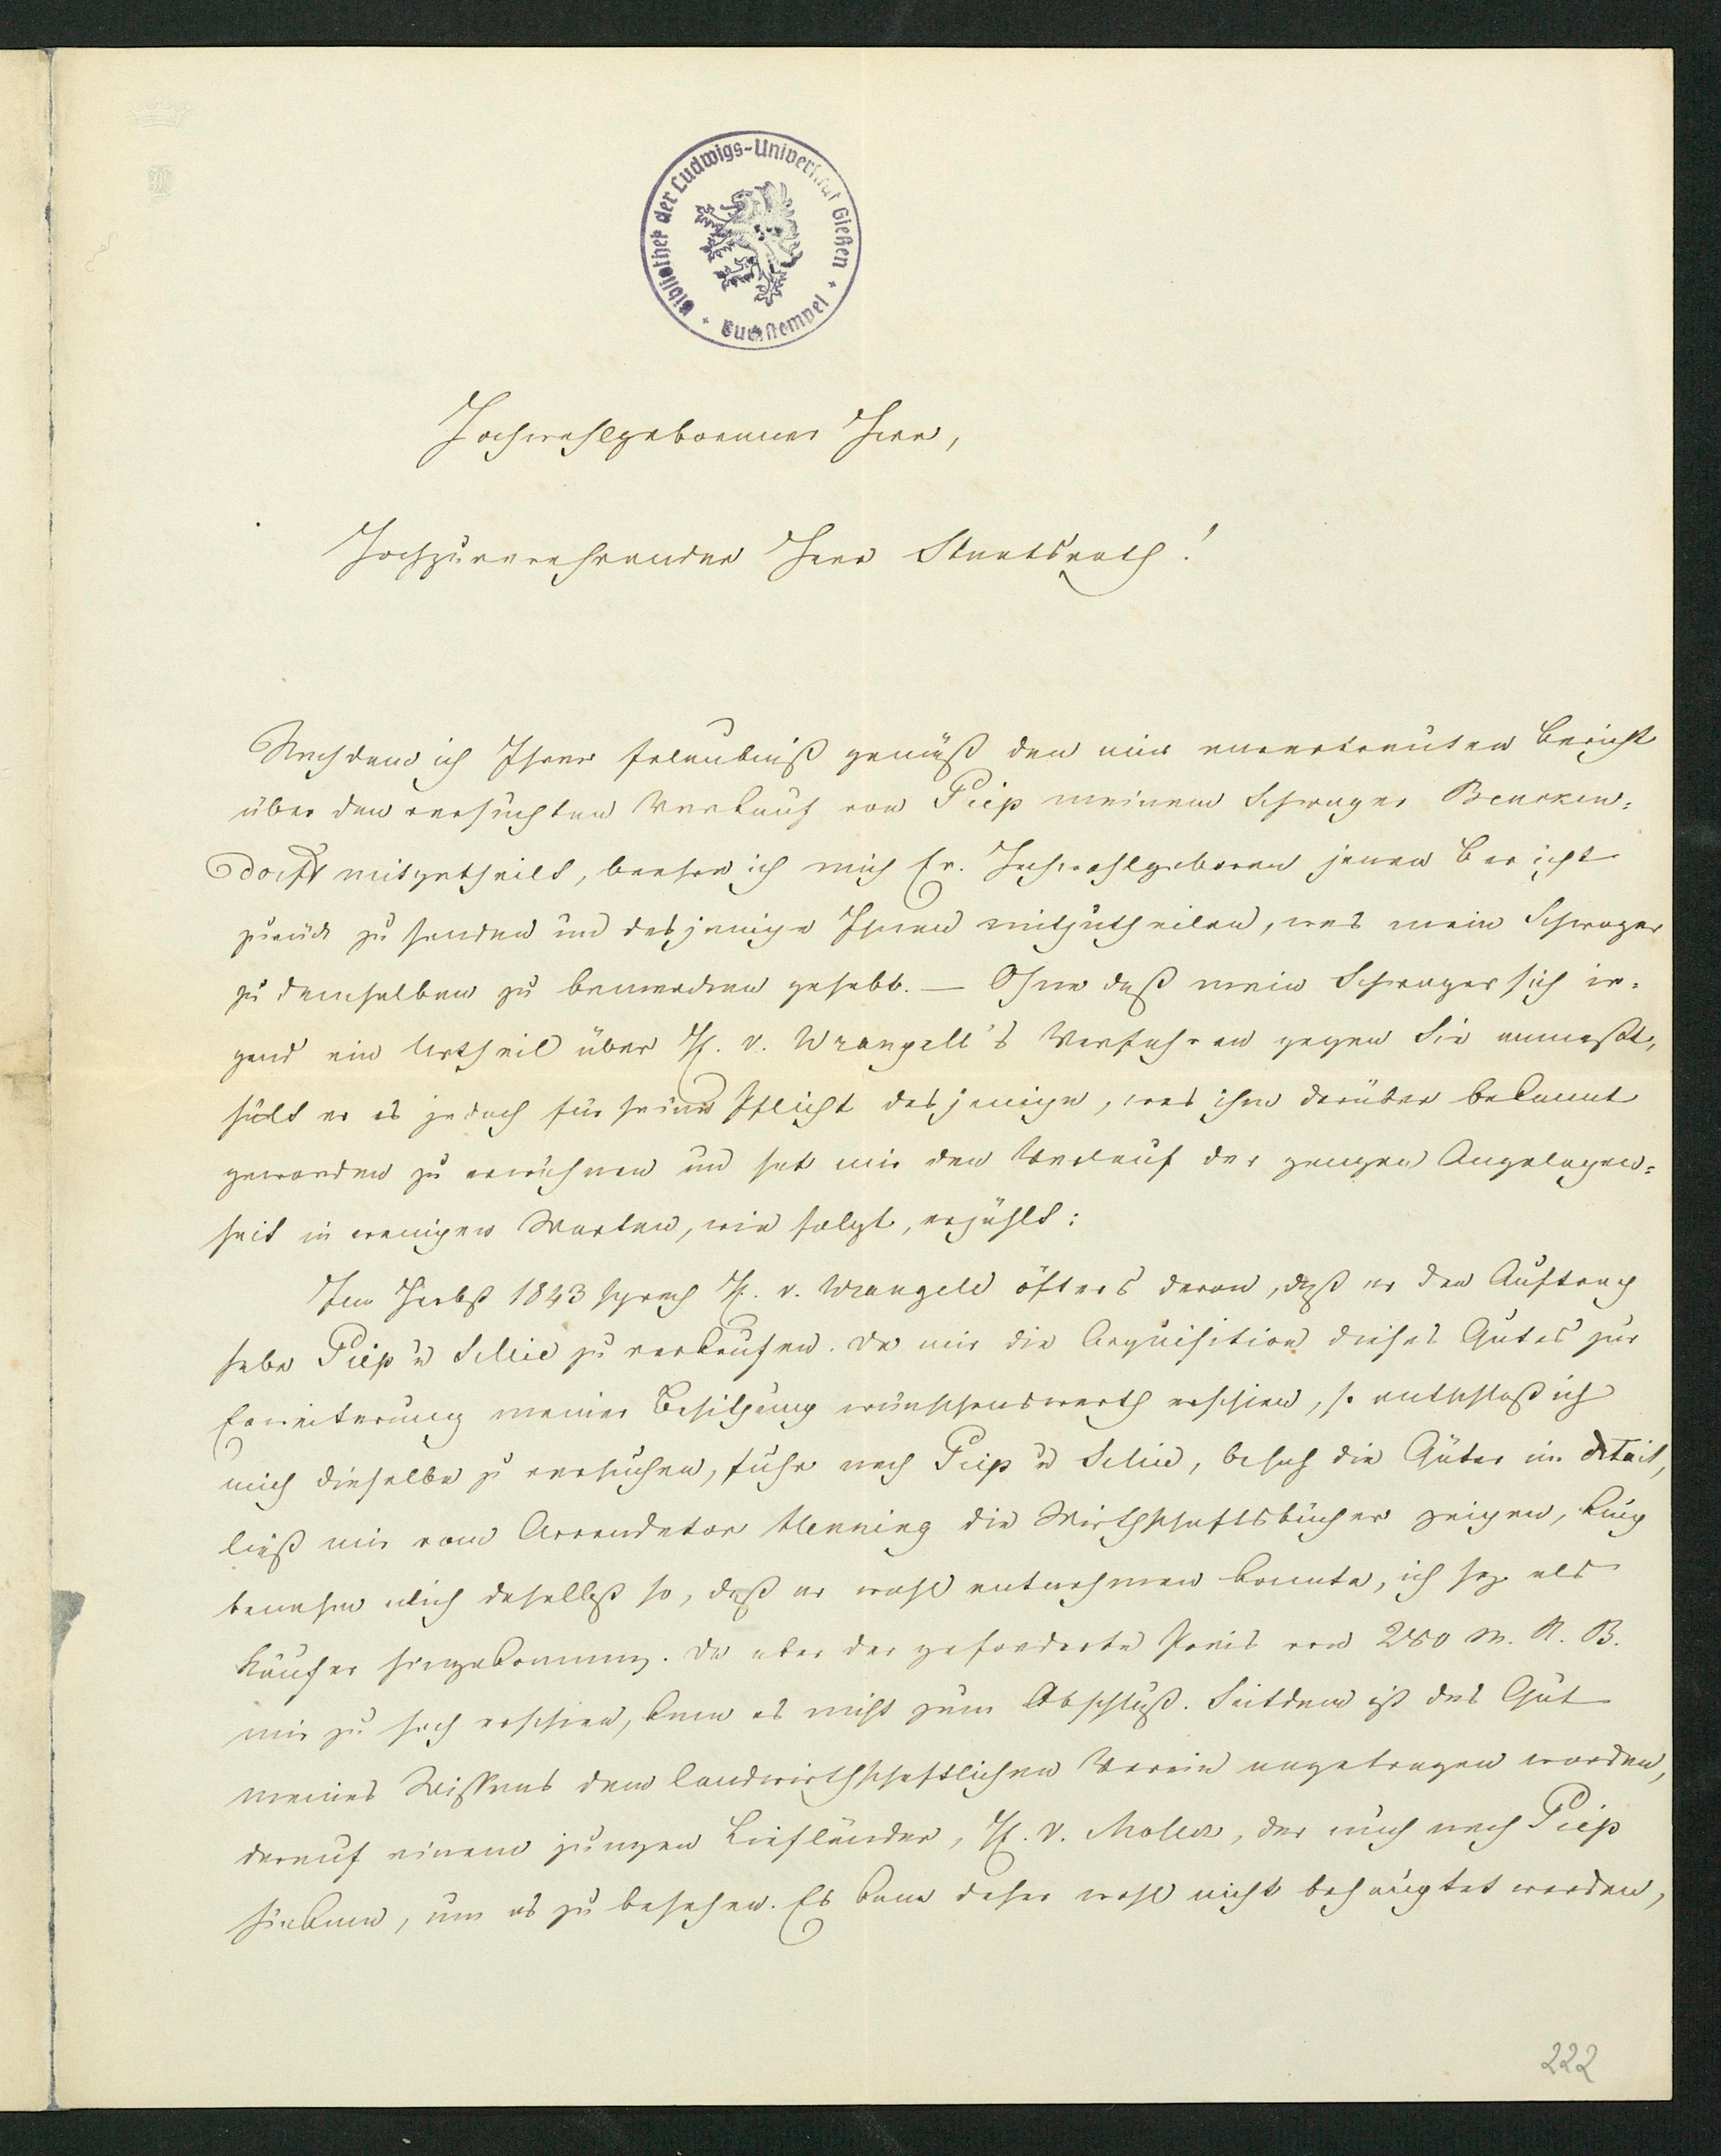 Bibliothek der Ludwigs-Universität Gießen
Buchstempel
Hochwohlgeborener Herr,
Hochzuverehrender Herr Staatsrath!
Nachdem ich Ihrer Erlaubniß gemäß den mir anvertrauten Bericht
über den versuchten Verkauf von Piep meinem Schwager Bencken-
dorff mitgetheilt, beehre ich mich Ew. Hochwohlgeboren jenen Bericht
zurück zu senden und dasjenige Ihnen mitzutheilen, was mein Schwager
zu demselben zu bemerken gehabt. — Ohne daß mein Schwager sich ir-
gend ein Urtheil über H. v. Wrangell's Verfahren gegen Sie anmaßt,
hält er es jedoch für seine Pflicht dasjenige, was ihm darüber bekannt
geworden zu erwähnen und hat mir den Verlauf der ganzen Angelegen-
heit in wenigen Worten, wie folgt, erzählt:
Im Herbst 1843 sprach H. v. Wrangell öfters davon, daß er den Auftrag
habe Piep u Sellie zu verkaufen. Da mir die Acquisition dieses Gutes zur
Erweiterung meiner Besitzung wünschenswerth erschien, so entschloß ich
mich dieselbe zu versuchen, fuhr nach Piep u Sellie, besah die Güter im détail,
ließ mir vom Arrendator Henning die Wirthschaftsbücher zeigen, kurz
benahm mich daselbst so, daß er wohl entnehmen konnte, ich sey als
Käufer hingekommen. Da aber der geforderte Preis von 280 m. R. B.
mir zu hoch erschien, kam es nicht zum Abschluß. Seitdem ist das Gut
meines Wissens dem landwirthschaftlichen Verein angetragen worden,
darauf einem jungen Liefländer, H. v. Moller, der auch nach Piep
hinkam, um es zu besehen. Es kann daher wohl nicht behauptet werden,
222